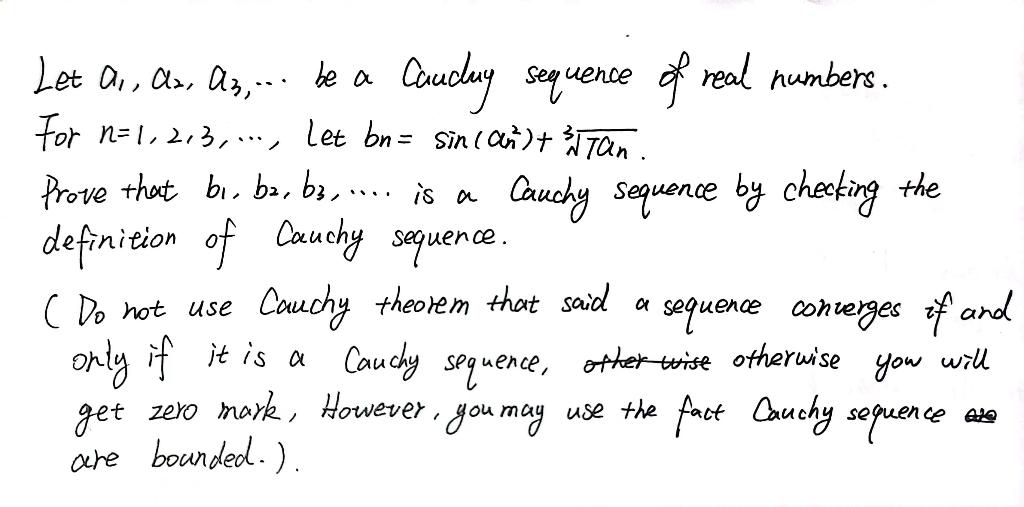 Let a₁, a₂, a₃,... be a Cauchy sequence of real numbers.
For n=1,2,3,..., Let bn= sin(an²)+ ∛7an.
Prove that b₁, b₂, b₃,.... is a Cauchy sequence by checking the
definition of Cauchy sequence.
( Do not use Cauchy theorem that said a sequence converges if and
only if it is a Cauchy sequence, other wise otherwise you will
get zero mark, However, you may use the fact Cauchy sequence are
are bounded.).